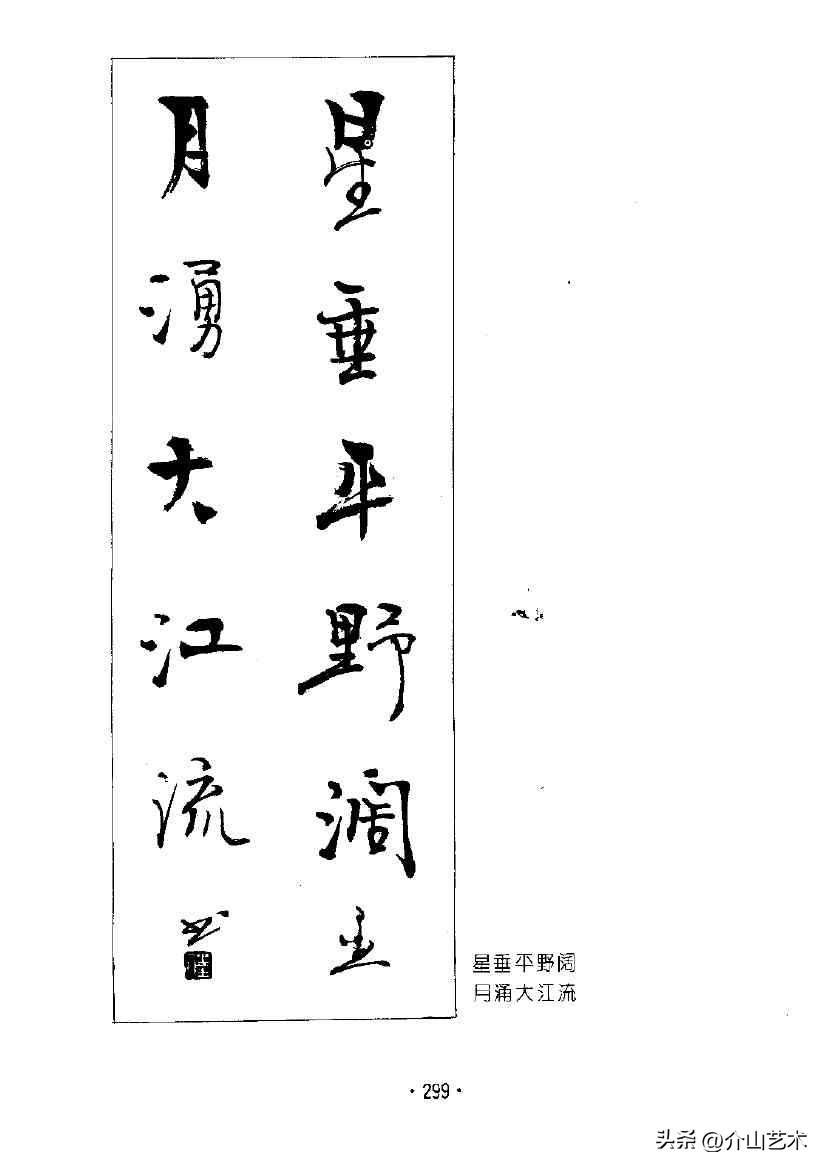 星垂平野濶
月湧大江流
书
星垂平野阔
月涌大江流
·299·
头条 @介山艺术